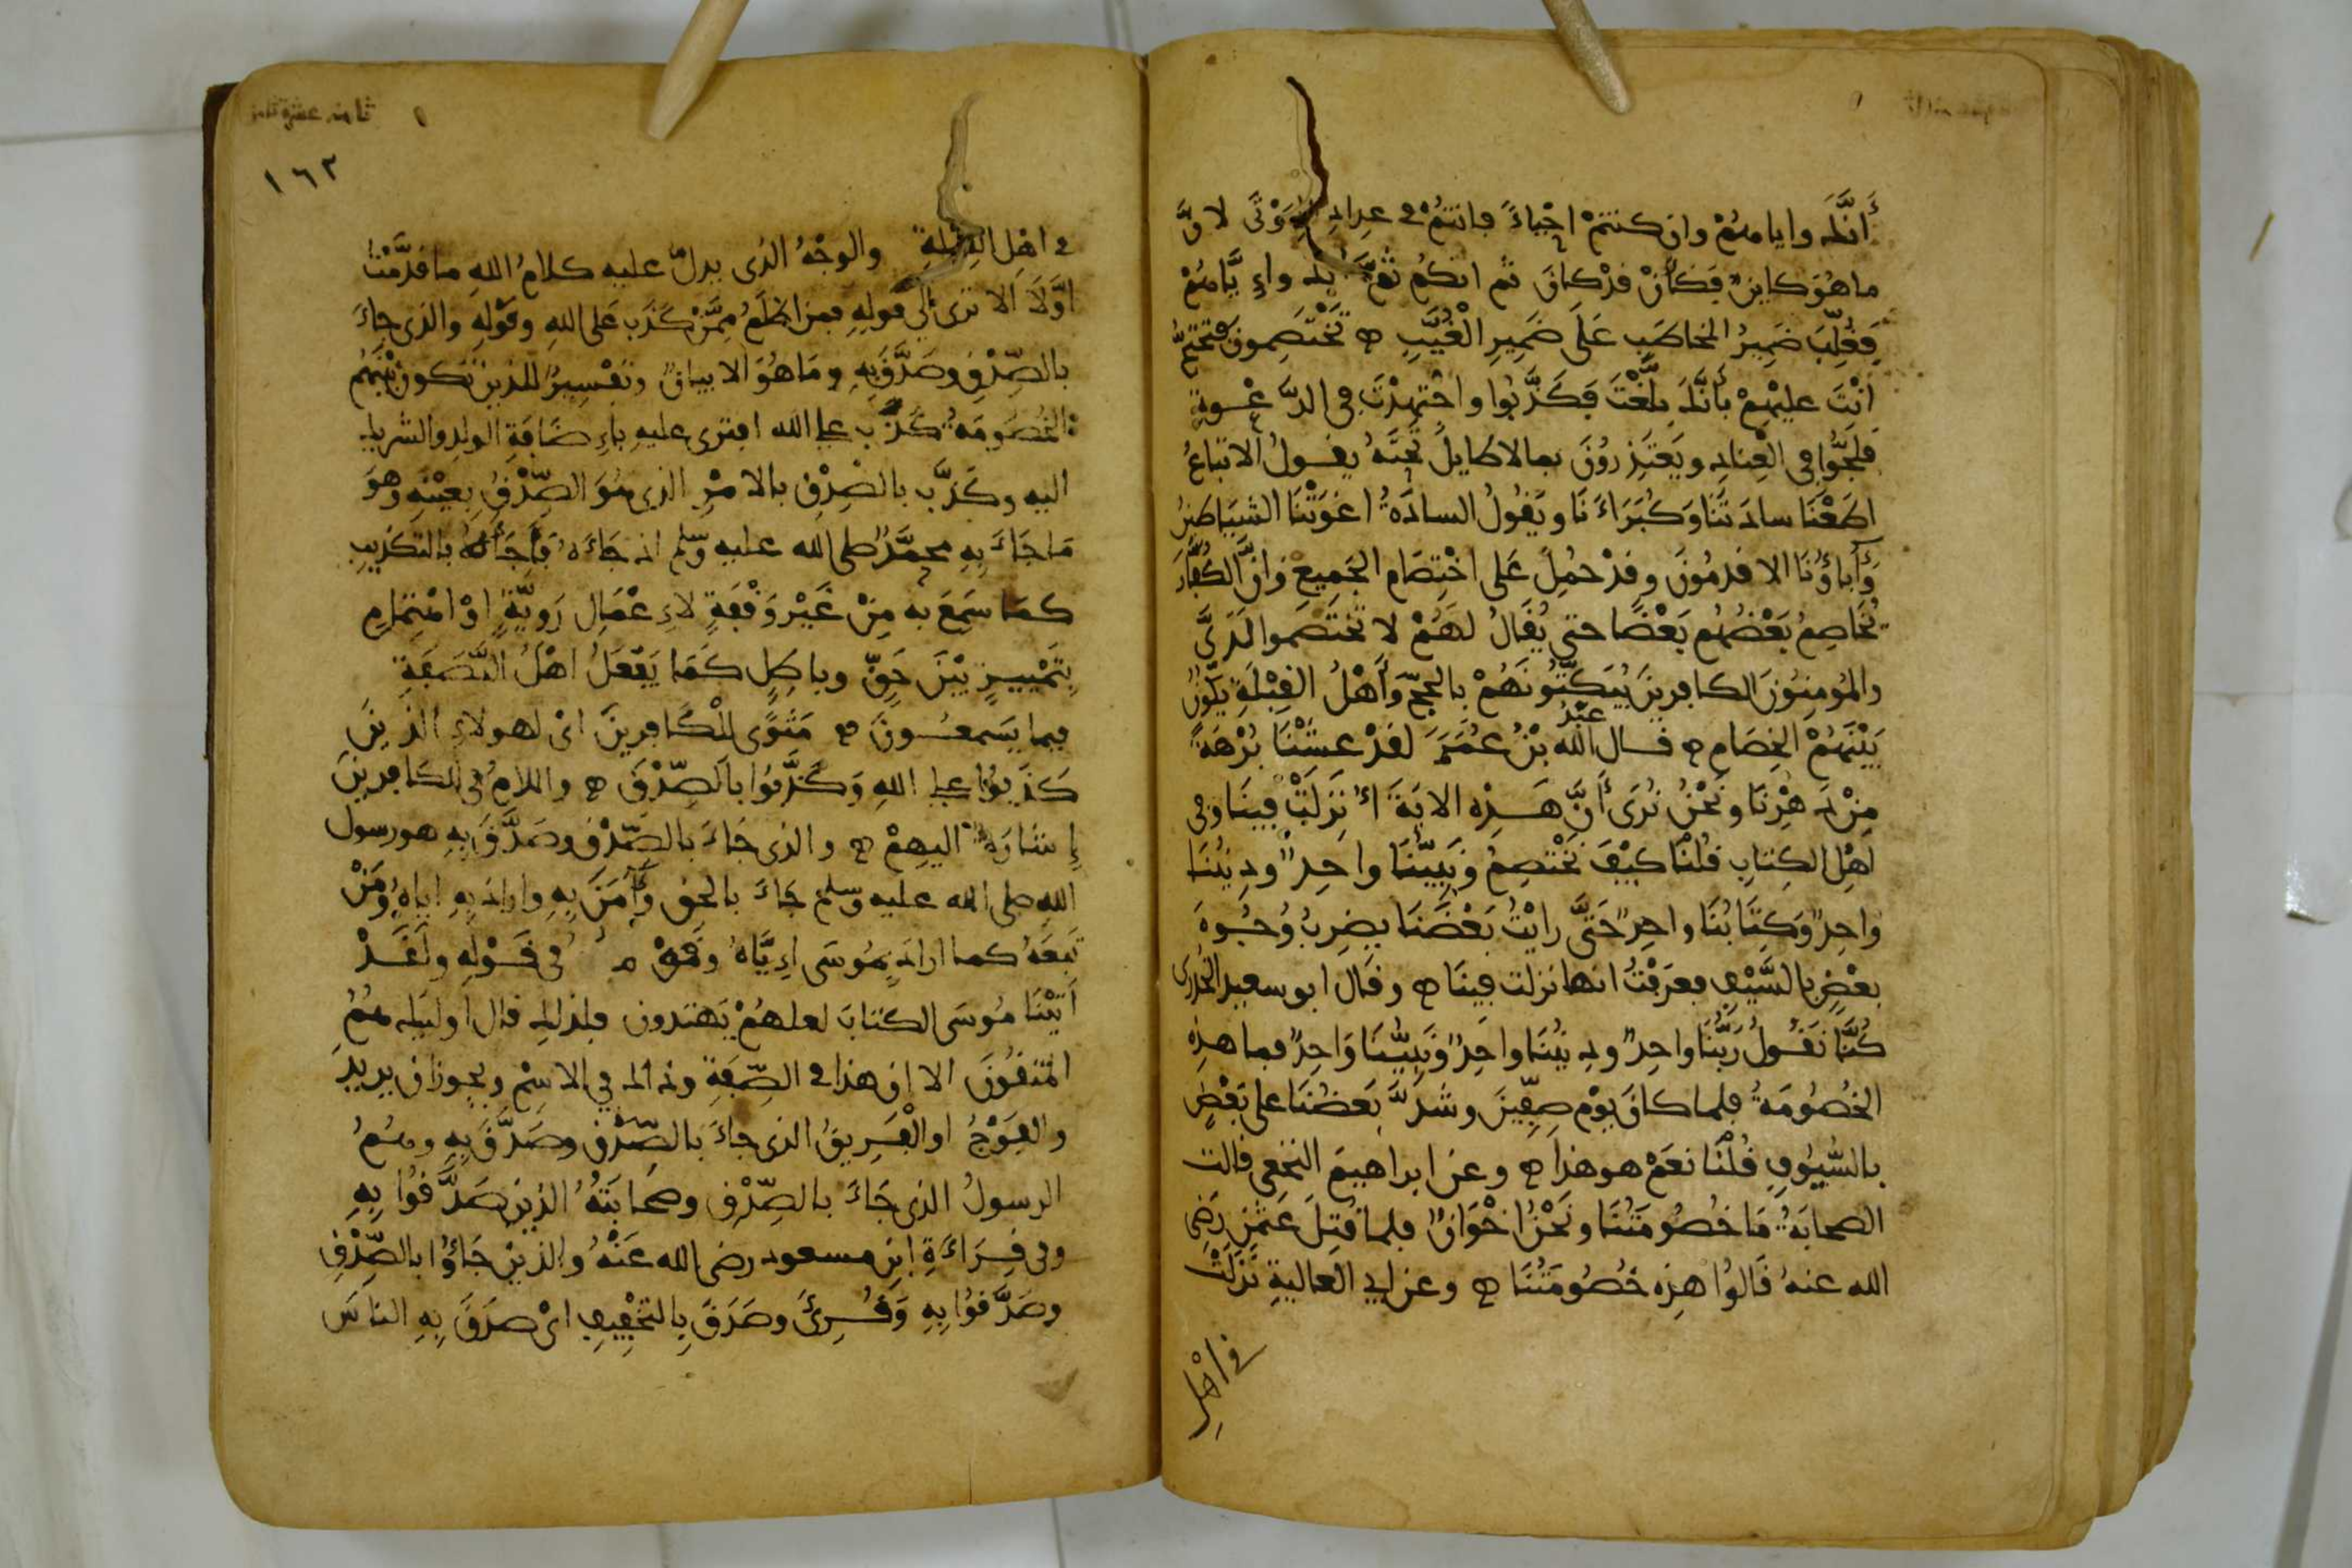 أنّك وإياهم وان كنتم احياءً فانتم في عداد الموتى لانّ
ما هو كاين فكأن قد كان ثم انكم ثم إنك وإيّاهم
فغلّب ضمير المخاطب على ضمير الغيّب تختصمون فتحتجّ
أنت عليهم بأنّك بلّغت فكذّبوا واجتهدت في الدّعوة
فلجّوا في العناد ويعتذرون بما لا طايل تحته يقول الاتباع
اطعنا سادتنا وكبراءنا ويقول السادة اغوتنا الشياطين
وأباؤنا الاقدمون وقد حمل على اختصام الجميع وانّ الكفّار
يخاصم بعضهم بعضا حتى يقال لهم لا تختصموا لديّ
والمومنون الكافرين يبكّتونهم بالحجج وأهل القبلة يكون
بينهم الخصام قال عبد الله بن عمر لقد عشنا برهة
من دهرنا ونحن نرى أنّ هذه الاية نزلت فينا وفي
اهل الكتاب قلنا كيف نختصم ونبيّنا واحد وديننا
واحد وكتابنا واحد حتّى رايت بعضنا يضرب وجوه
بعض بالسّيف فعرفت انها نزلت فينا وقال ابو سعيد الخدري
كنّا نقول ربّنا واحد وديننا واحد ونبيّنا واحد فما هذه
الخصومة فلما كان يوم صفّين وشدّ بعضنا على بعض
بالسّيوف قلنا نعم هو هذا وعن ابراهيم النخعي قالت
الصحابة ما خصومتنا ونحن اخوان فلما قتل عثمن رضي
الله عنه قالوا هذه خصومتنا وعن ابي العالية نزلت
في اهل
١٦٢
في اهل القبلة والوجه الذي يدلّ عليه كلام الله ما قدّمت
اوّلا ألا ترى الي قوله فمن اظلم ممّن كذب على الله وقوله والذي جاء
بالصّدق وصدّق به وما هو الا بيان وتفسير للذين تكون بينهم
الخصومة كذب على الله افترى عليه بإضافة الولد والشريك
اليه وكذّب بالصدق بالامر الذي هو الصّدق بعينه وهو
ما جاء به محمّد صلى الله عليه وسلم اذ جاءه فاجأه بالتكذيب
كما سمع به من غير وقفة لإعمال رويّة او اهتمام
بتمييز بين حقّ وباطل كما يفعل اهل النّصفة
فيما يسمعون مثوًى للكافرين اي لهولاء الذين
كذبوا على الله وكذّبوا بالصّدق واللام في الكافرين
إشارة اليهم والذي جاء بالصّدق وصدّق به هو رسول
الله صلى الله عليه وسلم جاء بالحق وآمن به واراد به اياه ومن
تبعه كما اراد بموسى إيّاه وقومه في قوله ولقد
آتينا موسى الكتاب لعلهم يهتدون فلذلك قال اوليك هم
المتقون الا ان هذا في الصّفة وذاك في الاسم ويجوز ان يريد
والفوج او الفريق الذي جاء بالصّدق وصدّق به وهم
الرسول الذي جاء بالصّدق وصحابته الذين صدّقوا به
وفي قراءة ابن مسعود رضي الله عنه والذين جاؤا بالصّدق
وصدّقوا به وقرئ وصدق بالتخفيف اي صدق به الناس